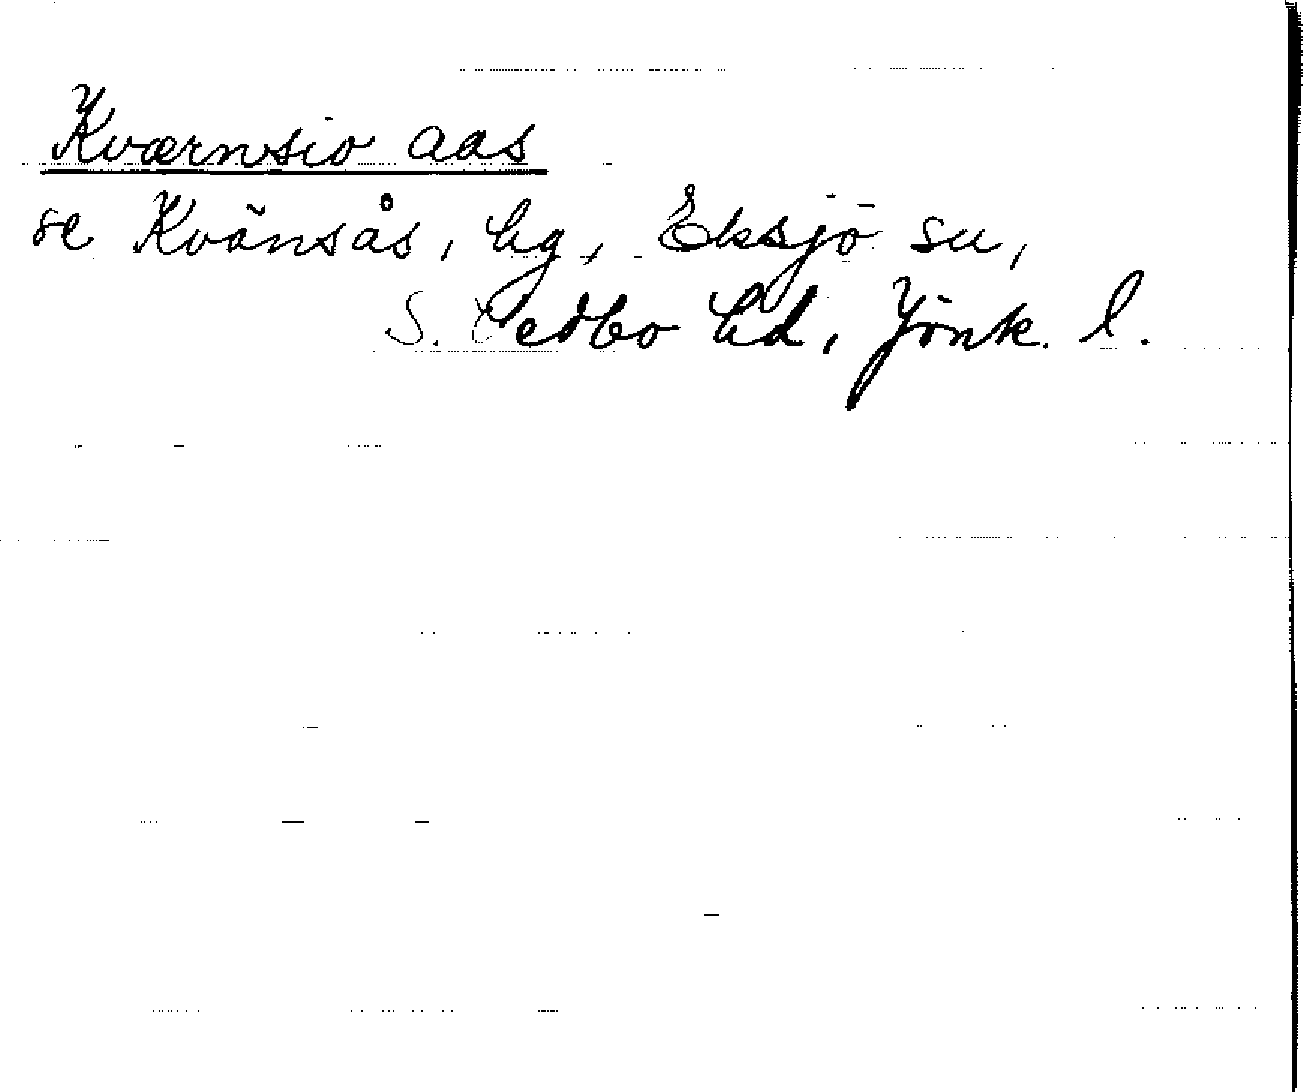 Kværnsio aas
se Kvänsås, hg, Eksjö sn,
S. Vedbo hd, Jönk. l.